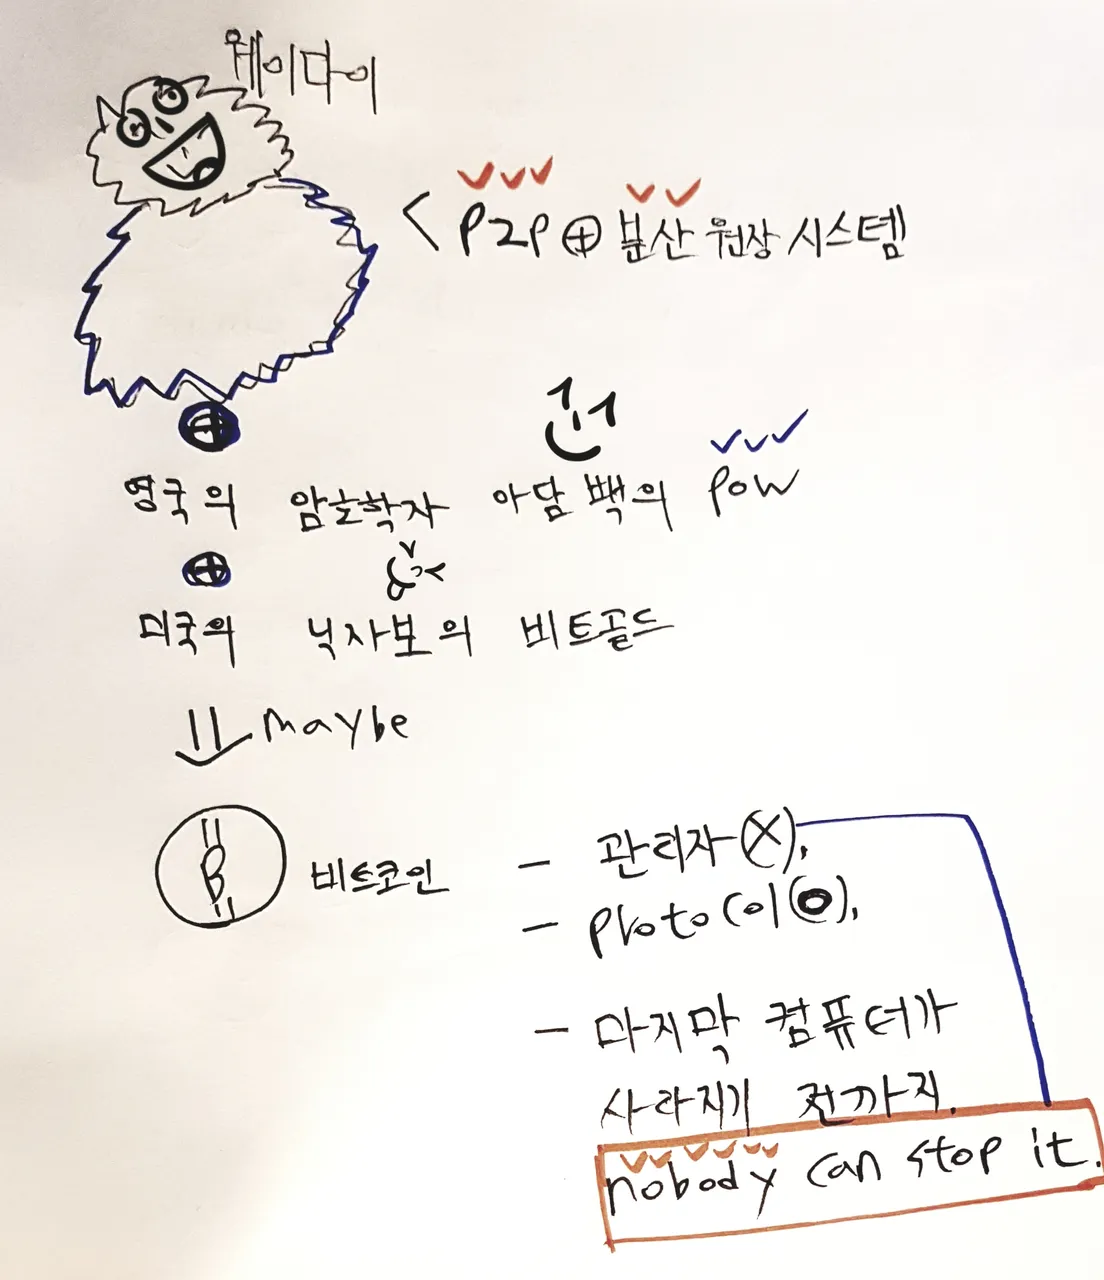 웨이다이
< P2P ⊕ 분산 원장 시스템
⊕
영국의 암호학자 아담 백의 POW
⊕
미국의 닉자보의 비트골드
⇓ maybe
B 비트코인
- 관리자(X),
- Protocol(O),
- 마지막 컴퓨터가
사라지기 전까지.
nobody can stop it.